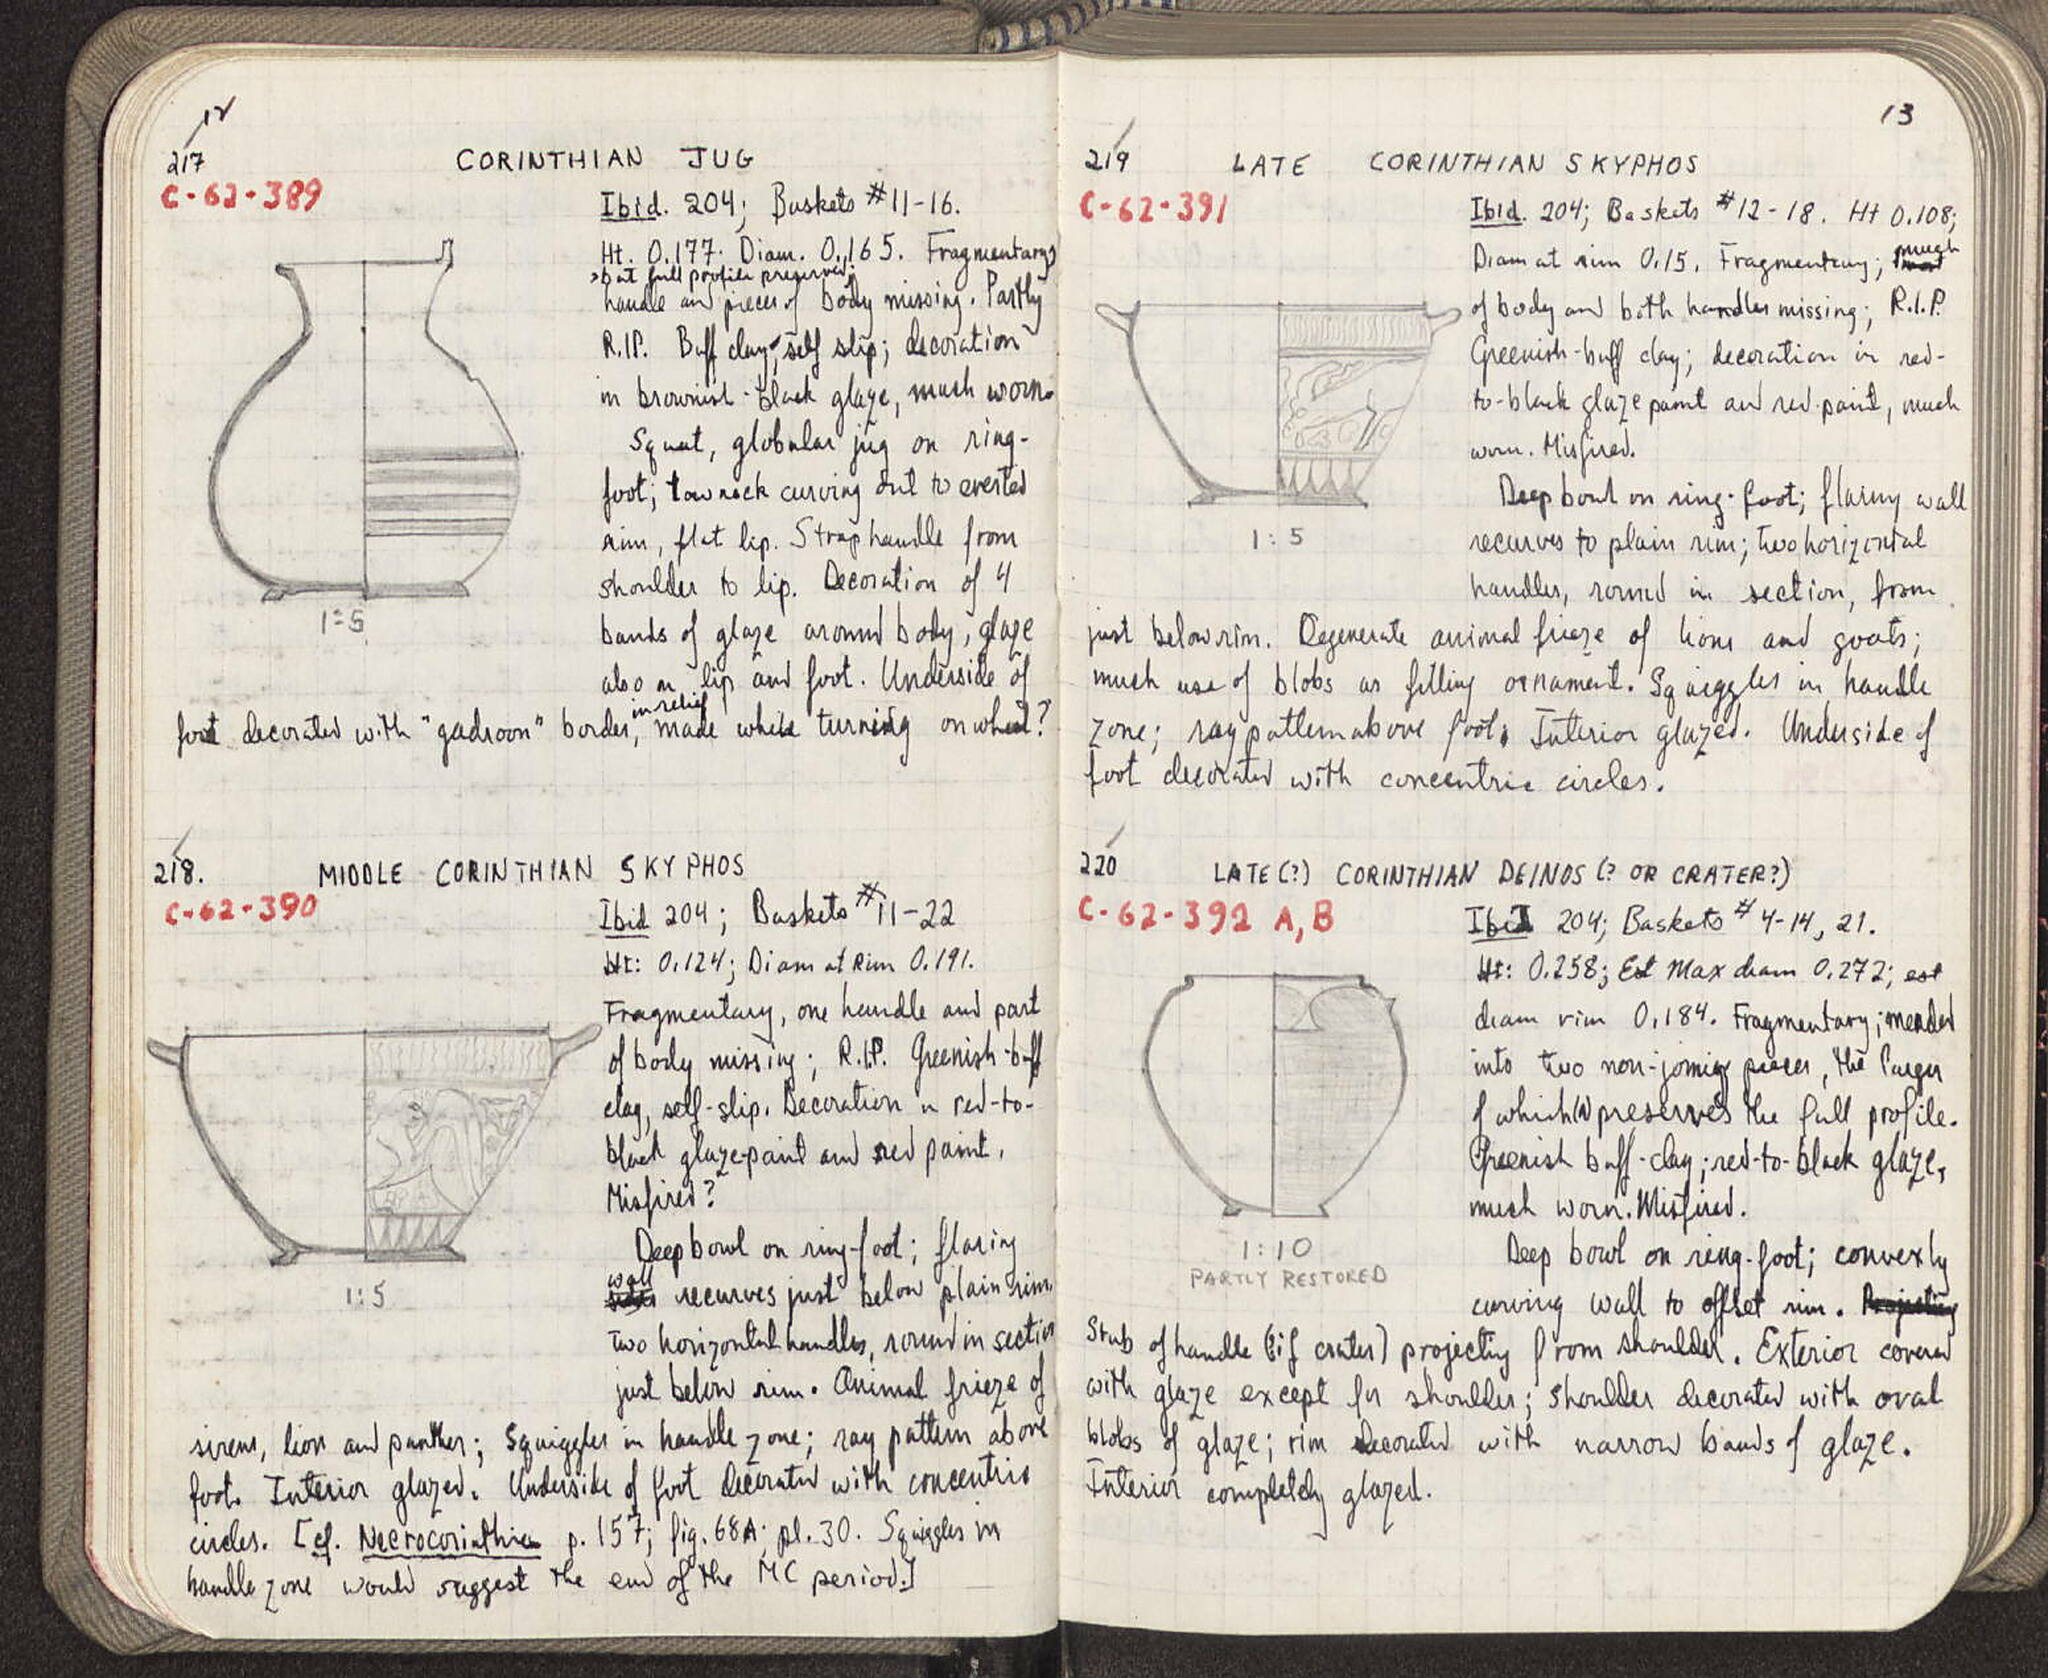 12
217
CORINTHIAN JUG
C-62-389
Ibid. 204; Baskets #11-16.
Ht. 0.177. Diam. 0.165. Fragmentary,
but full profile preserved;
handle and pieces of body missing. Partly
R.I.P. Buff clay, self slip; decoration
in brownish-black glaze, much worn.
Squat, globular jug on ring-
foot; low neck curving out to everted
rim, flat lip. Strap handle from
shoulder to lip. Decoration of 4
bands of glaze around body; glaze
also on lip and foot. Underside of
in relief
foot decorated with "gadroon" border, made while turning on wheel?
1:5
218.
MIDDLE CORINTHIAN SKYPHOS
C-62-390
Ibid 204; Baskets #11-22
Ht: 0.124; Diam at rim 0.191.
Fragmentary, one handle and part
of body missing; R.I.P. Greenish-buff
clay, self-slip. Decoration in red-to-
black glaze-paint and red paint.
Misfired?
Deep bowl on ring-foot; flaring
wall recurves just below plain rim.
Two horizontal handles, round in section
just below rim. Animal frieze of
sirens, lion and panther; Squiggles in handle zone; ray pattern above
foot. Interior glazed. Underside of foot decorated with concentric
circles. [cf. Necrocorinthia p. 157; fig. 68A; pl. 30. Squiggles in
handle zone would suggest the end of the MC period.]
1:5
13
219
LATE CORINTHIAN SKYPHOS
C-62-391
Ibid. 204; Baskets #12-18. Ht 0.108;
Diam at rim 0.15. Fragmentary; much
of body and both handles missing; R.I.P.
Greenish-buff clay; decoration in red-
to-black glaze paint and red paint, much
worn. Misfired.
Deep bowl on ring-foot; flaring wall
recurves to plain rim; two horizontal
handles, round in section, from
just below rim. Degenerate animal frieze of lions and goats;
much use of blobs as filling ornament. Squiggles in handle
zone; ray pattern above foot. Interior glazed. Underside of
foot decorated with concentric circles.
1:5
220
LATE(?) CORINTHIAN DEINOS (? OR CRATER?)
C-62-392 A, B
Ibid 204; Baskets #4-14, 21.
Ht: 0.258; Est Max diam 0.272; est
diam rim 0.184. Fragmentary; mended
into two non-joining pieces, the larger
of which (A) preserves the full profile.
Greenish buff-clay; red-to-black glaze,
much worn. Misfired.
Deep bowl on ring-foot; convexly
curving wall to offset rim. Projecting
Stub of handle (if crater) projecting from shoulder. Exterior covered
with glaze except for shoulder; shoulder decorated with oval
blobs of glaze; rim decorated with narrow bands of glaze.
Interior completely glazed.
1:10
PARTLY RESTORED